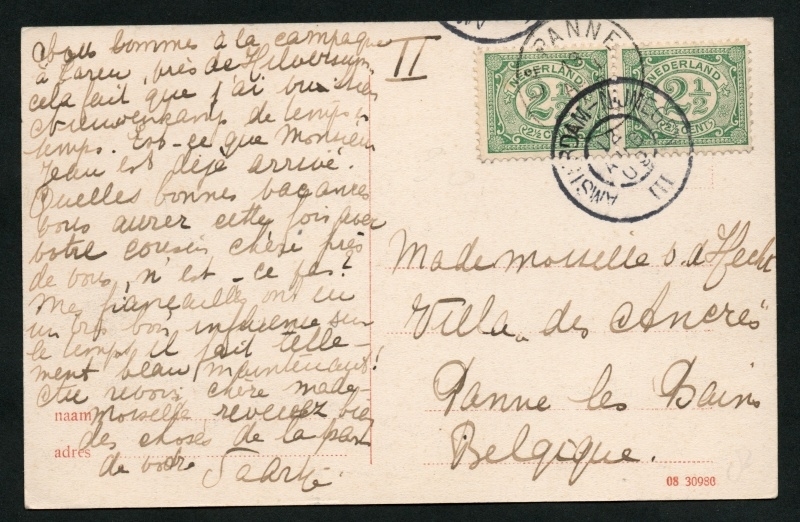 Nous sommes à la campagne
à Laren, près de Hilversum
cela fait que j'ai vu
Nieuwenkamp de temps
temps. Est-ce que Monsieur
Jean est déjà arrivé.
Quelles bonnes vacances
vous aurez cette fois avec
votre cousin chéri près
de vous, n'est-ce pas?
Mes fiançailles ont eu
un très bon influence sur
le temps, il fait telle-
ment beau maintenant!
Au revoir chère made-
moiselle recevez bien
des choses de la part
de votre Saartje.
naam
adres
II
PANNE
NEDERLAND
2½
(2½ CENT)
NEDERLAND
2½
(2½ CENT)
AMSTERDAM-NIJMEGEN
III
Mademoiselle v. d. Hecht
Villa des Ancres
Panne les Bains
Belgique.
08 30980